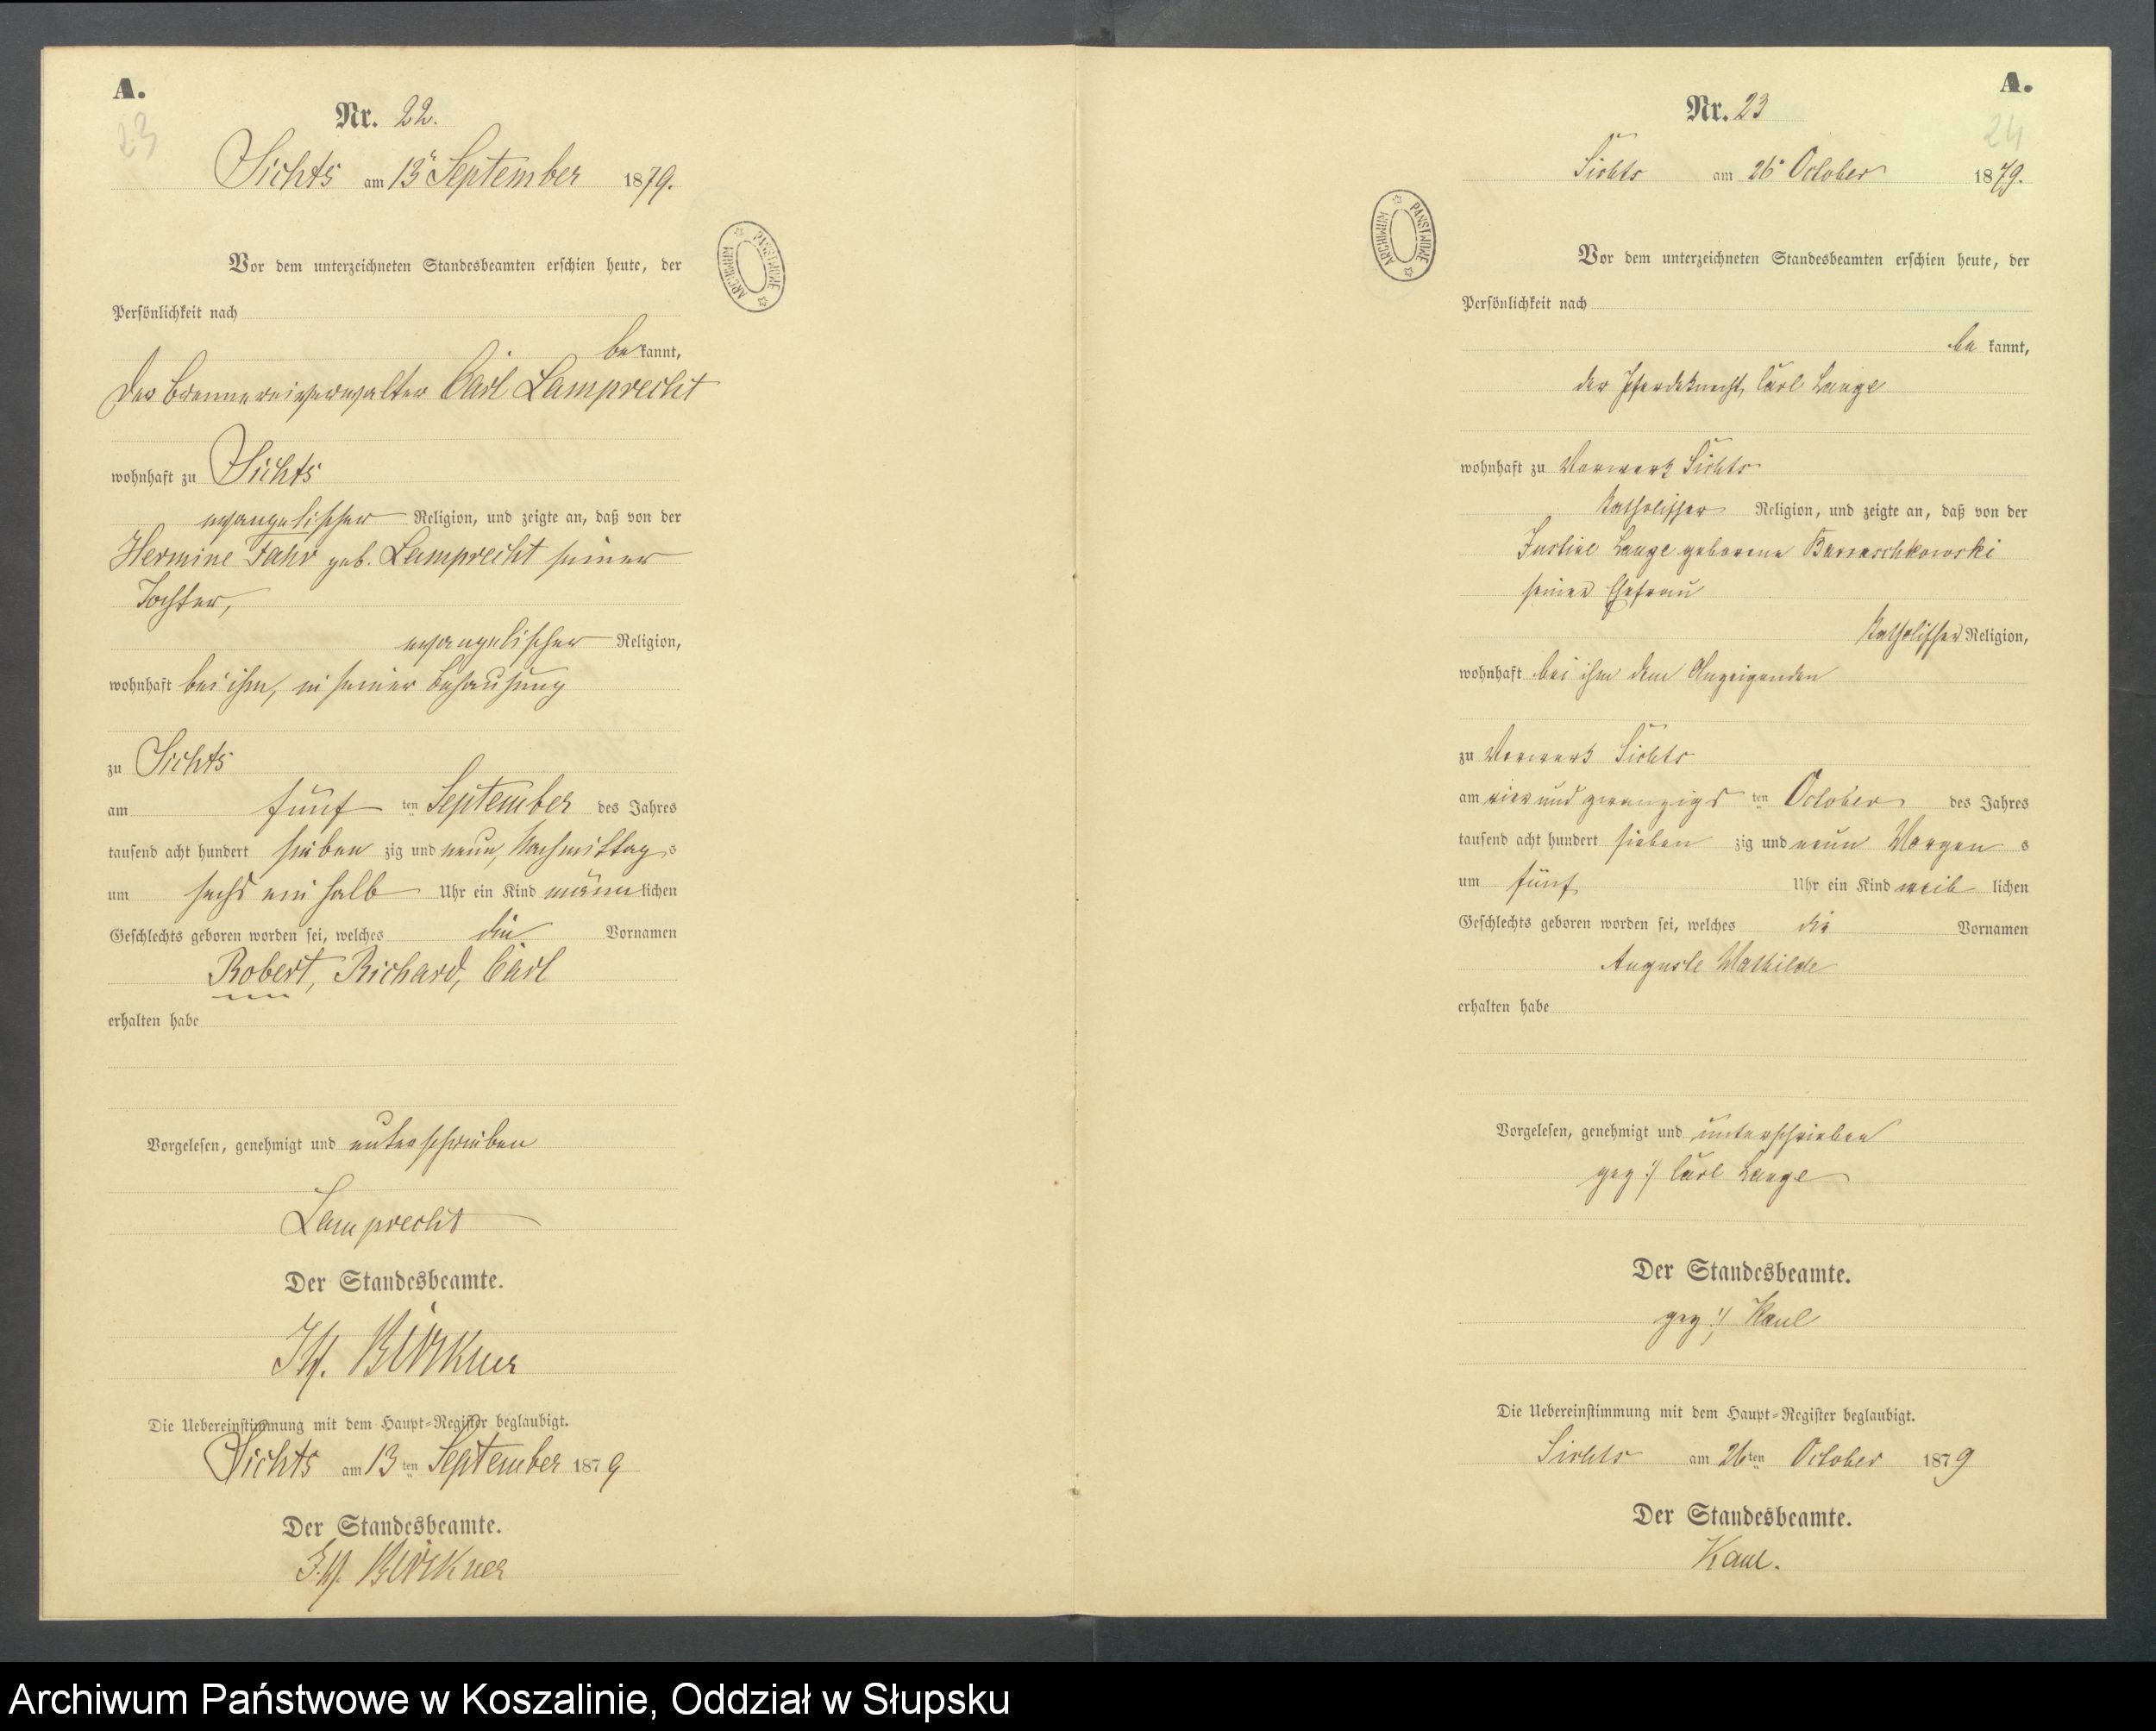 A.
23
Nr. 22.
Sichts am 13t September 1879.
Vor dem unterzeichneten Standesbeamten erschien heute, der
Persönlichkeit nach
bekannt,
Der Brennereiverwalter Carl Lamprecht
wohnhaft zu Sichts
evangelischer Religion, und zeigte an, daß von der
Hermine Fahr geb. Lamprecht seiner
Tochter,
evangelischer Religion,
wohnhaft bei ihm, in seiner Behausung
zu Sichts
am fünf ten September des Jahres
tausend acht hundert sieben zig und neun, Nachmittag s
um sechs ein halb Uhr ein Kind männlichen
Geschlechts geboren worden sei, welches die Vornamen
Robert, Richard, Carl
erhalten habe
Vorgelesen, genehmigt und unterschrieben
Lamprecht
Der Standesbeamte.
Birkner
Die Uebereinstimmung mit dem Haupt=Register beglaubigt.
Sichts am 13 ten September 1879
Der Standesbeamte.
Birkner
ARCHIWUM PAŃSTWOWE
A.
24
Nr. 23
Sichts am 26t October 1879.
Vor dem unterzeichneten Standesbeamten erschien heute, der
Persönlichkeit nach
be kannt,
der Pferdeknecht, Carl Lange
wohnhaft zu Vorwerk Sichts
katholischer Religion, und zeigte an, daß von der
Justine Lange geborene
seiner Ehefrau
katholischer Religion,
wohnhaft bei ihm dem Anzeigenden
zu Vorwerk Sichts
am vier und zwanzigs ten October des Jahres
tausend acht hundert sieben zig und neun Morgen s
um fünf Uhr ein Kind weib lichen
Geschlechts geboren worden sei, welches die Vornamen
Auguste Mathilde
erhalten habe
Vorgelesen, genehmigt und unterschrieben
gez:/ Carl Lange
Der Standesbeamte.
gez:/ Kaul
Die Uebereinstimmung mit dem Haupt=Register beglaubigt.
Sichts am 26ten October 1879
Der Standesbeamte.
Kaul.
ARCHIWUM PAŃSTWOWE
Archiwum Państwowe w Koszalinie, Oddział w Słupsku